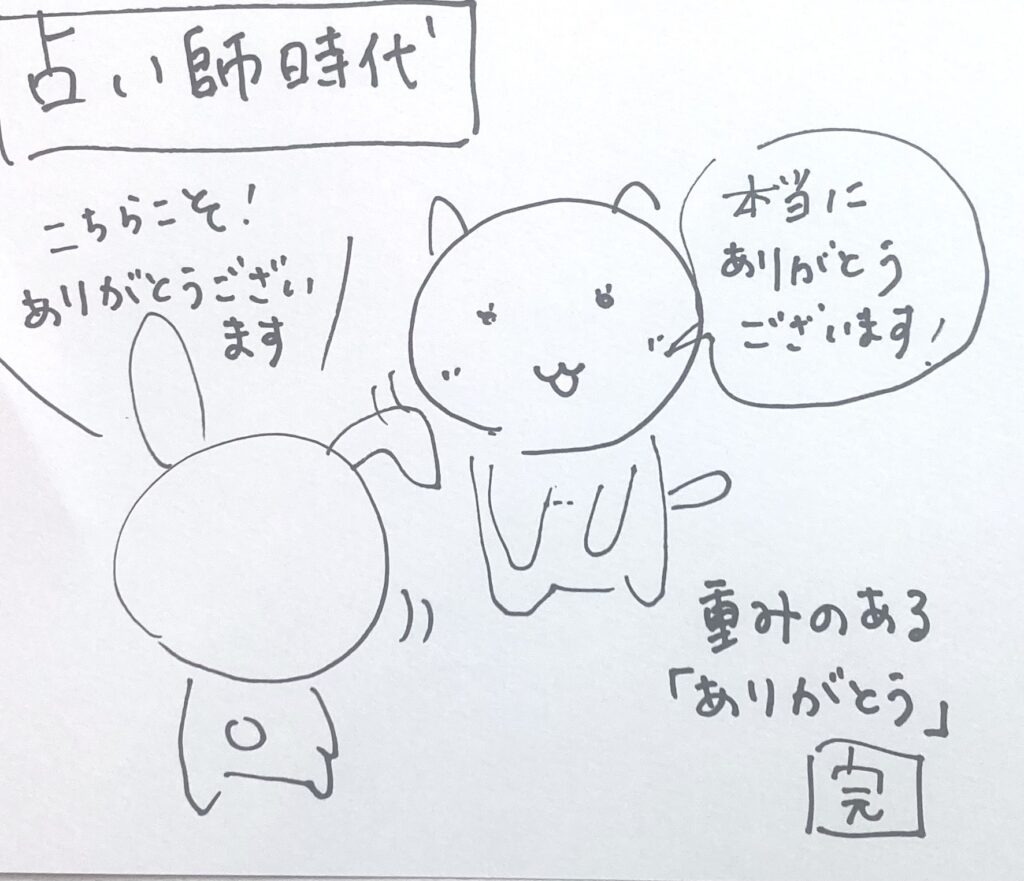 占い師時代
こちらこそ！
ありがとうござい
ます
本当に
ありがとう
ございます！
重みのある
「ありがとう」
完